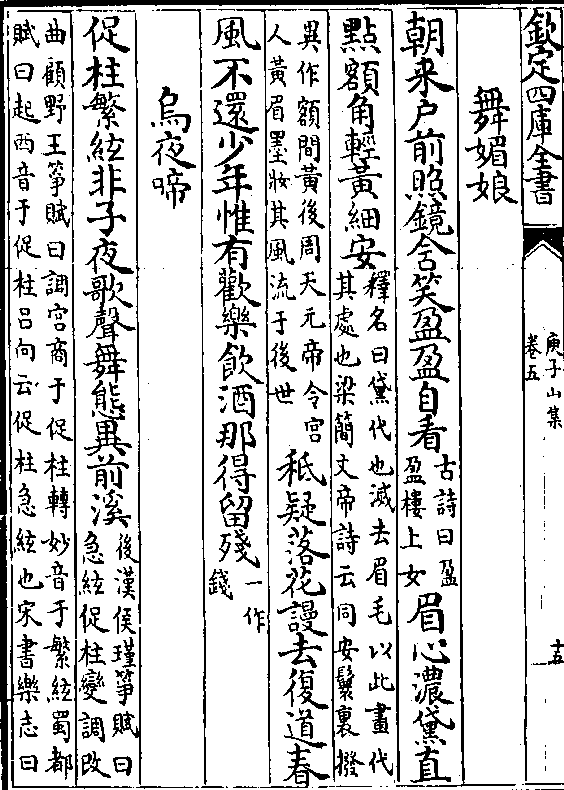 欽定四庫全書
庾子山集
卷五
十五
舞媚娘
朝来户前照鏡含笑盈盈自看古詩曰盈
盈樓上女眉心濃黛直
點額角輕黃細安釋名曰黛代也滅去眉毛以此畫代
其處也梁簡文帝詩云同安鬟裏撥
異作額間黃後周天元帝令宫
人黃眉墨妝其風流于後世秪疑落花謾去復道春
風不還少年惟有歡樂飲酒那得留殘一作
錢
烏夜啼
促柱繁絃非子夜歌聲舞態異前溪後漢侯瑾筝賦曰
急絃促柱變調改
曲顧野王筝賦曰調宫商于促柱轉妙音于繁絃蜀都
賦曰起西音于促柱吕向云促柱急絃也宋書樂志曰